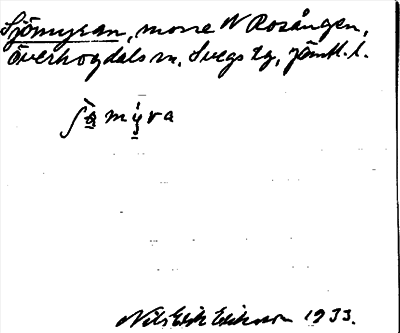 Sjömyran, mosse N Rosången,
Överhogdals sn, Svegs tg, Jämtl. l.
ʃö̀mýra
Nils Erik Eriksson 1933.